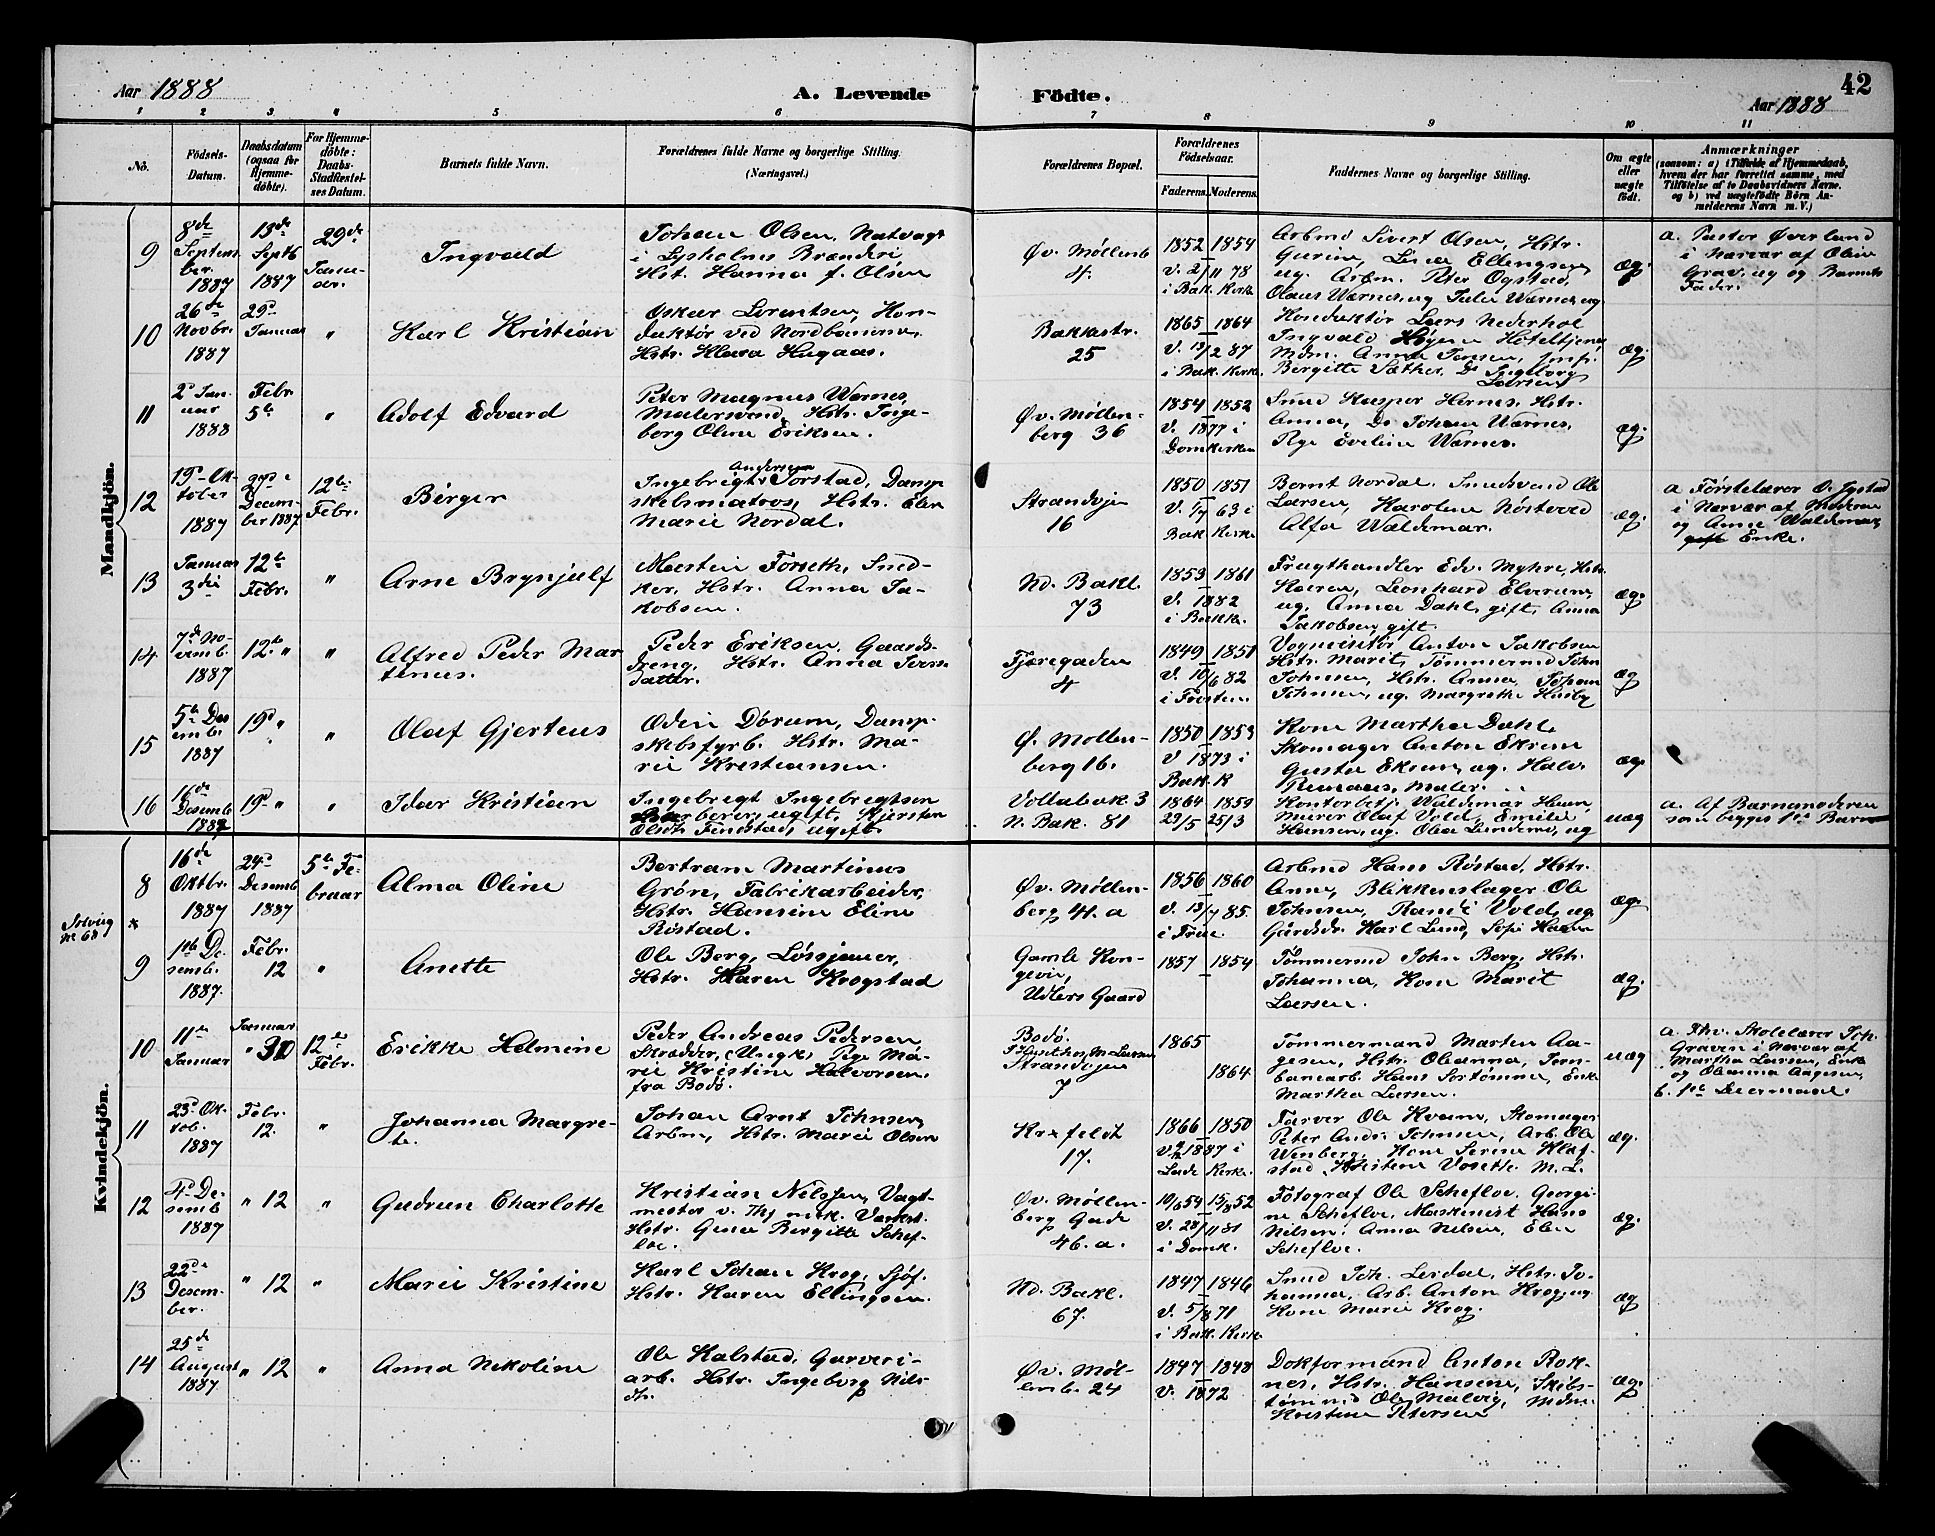 Aar 1888
A. Levende Födte.
Aar 1888
42
1 2 3 4 5 6 7 8 9 10 11
No.
Födsels-
Datum.
Daabsdatum
(ogsaa for
Hjemme-
döbte).
For Hjemme-
döbte:
Daabs-
Stadfæstel-
ses Datum.
Barnets fulde Navn.
Forældrenes fulde Navne og borgerlige Stilling.
(Næringsvei.)
Forældrenes Bopæl.
Forældrenes
Födselsaar.
Faderens. Moderens.
Faddernes Navne og borgerlige Stilling.
Om ægte
eller
uægte
födt.
Anmærkninger
(saasom: a) i Tilfælde af Hjemmedaab,
hvem der har forrettet samme, med
Tilföielse af to Daabsvidners Navne.
og b) ved uægtefödte Börn An-
melderens Navn m. V.)
Mandkjön.
9
8de
Septem
ber
1887
13de
Septb
1887
29de
Janu-
ar.
Ingvald
Johan Olsen, Natvagt
i Lysholms Brænderi,
Hst. Hanna f. Olsen
Øv. Møllenb
4.
1852 1854
v. 2/11 78
i Bak. Kirke
Arbmd Sivert Olsen, Hstr.
Gurine, Lina Ellingsen,
ug. Arbm. Peter Ogstad,
Olaus Værnes, ug Julie Værnes, ug
æg.
a. Pastor Øverland
i Nærvær af Olin
Grav, ug og Barnets
Fader.
10
26de
Novbr.
1887
29de
Januar
"
Karl Kristian
Oskar Lorentsen, Kon-
duktør ved Nordbanen,
Hstr. Klara Hugaas.
Bakkestr.
25
1865 1864
v. 13/2 87
i Bak. Kirke.
Konduktør Lars Nederhol
Ingvald Høyen Hoteltjener
Mdm. Anna Jensen, Jomf.
Bergitte Sæther, Do Ingeborg
Larsen
æg.
11
2d Jan-
uar
1888
Febr.
5te
"
Adolf Edvard
Peter Magnus Værnes,
Malersvend, Hstr. Inge-
borg Oline Eriksen.
Øv. Møllen-
berg 36
1854 1852
v. 1877 i
Domkirken
Smed Kasper Hernes, Hstr.
Anna, Do Johan Værnes,
Pge Eveline Værnes.
æg.
12
19d Ok-
tober
1887
27de
Decem-
ber 1887
12te
Febr.
Birger
Andersen
Ingebrigt Torstad, Damp
skibsmatros, Hstr. Elen
Marie Nordal.
Strandvejen
16
1850 1851
Bak. Kirke
Bernt Nordal, Smedsvend Ole
Larsen, Karoline Nöstvold
Alfa Waldemar.
æg.
a Førstelærer O. Jystad
i Nærvær af Moderen
og Anne Waldemar,
gift Enke.
13
Januar
3die
12te
Febr.
"
Arne Brynjulf
Martin Forseth, Sned-
ker, Hstr. Anna Ja-
kobsen.
Nd. Bakl.
73
1853 1861
v. 1882
i Bakk.
Frugthandler Edv. Myhre, Hstr.
Karen, Leonhard Elverum,
ug, Anna Dahl, gift, Anna
Jakobsen, gift.
æg.
14
7de No-
vemb.
1887
12te "
"
Alfred Peder Mar
tinus.
Peder Eriksen, Gaards-
dreng, Hstr. Anna Ivers
datter.
Fjæregaden
4
1849 1851
v. 10/6 82
i Frosten.
Anton Jakobsen
Hstr. Marit, Tömmermd John
Johnsen, Hstr. Anna, Johan
Johnsen, ug. Margrethe Husby
æg
15
5te Des
emb.
1887
19d "
"
Olaf Gjertius
Odin Dörum, Damp-
skibsfyrb. Hstr. Ma-
rie Kristiansen.
Ø. Møllen-
berg 16.
1850 1853
v 1873 i
Bak. K
Kone Martha Dahl
Skomager Anton Ekren
Gusta Ekren, ug. Halv.
Renaas, Maler.
æg.
16
16de
Desemb
1887
19d "
"
Idar Kristian
Ingebrigt Ingebrigtsen
ugift, Kjersten
Olsdt. Finstad, ugift.
Vollabak. 3
N. Bak. 81
1864 1859
29/5 25/3
Kontorbetj. Waldemar Haan,
Murer Olaf Vold, Emilie
Hansen, ug. Olea Lundemo, ug
uæg
a. Af Barnemoderen
som begges 1ste Barn
Kvindekjön.
No 68
8
*
16de
Oktbr.
1887
24d
Desemb
1887
5te Fe-
bruar
Alma Oline
Bertram Martinus
Grön, Fabrikarbeider,
Hstr. Hansine Eline
Röstad.
Øv. Møllen-
berg 4. a
1856 1860
v. 13/7 85.
i Frue.
Arbmd Hans Röstad, Hstr.
Anne, Blikkenslager Ole
Johnsen, Randi Vold, ug.
Gårdsdr. Karl Lund, Sofi Haan
æg.
9
1ste De-
semb.
1887.
Febr.
12
"
Anette
Ole Berg, Løssjauer,
Hstr. Karen Krogstad
Gamle Kon-
gevei,
Udlers Gaard
1857 1854
Tömmermd John Berg, Hstr.
Johanna, Kone Marit
Larsen.
æg.
10
11te
Januar
Januar
" 30
12te
Febr.
Erikke Helmine
Peder Andreas Pedersen
Skrædder, (Ungk) Pge Ma-
rie Kristine Halvorsen,
fra Bodö.
Bodö.
M. Larsen
Strandvejen
7
1865 1864
Tommermand Marten Aa-
gesen, Hstr. Oleanna, Jern-
banearb. Hans Sortömme, Enke
Martha Larsen.
uæg
a. Fhv. Skolelærer Joh.
Graven i Nærvær af
Martha Larsen, Enke
og Oleanna Aagesen,
b. 1ste Leiermaal.
11
23d Ok-
tob.
1887
Febr.
12.
"
Johanna Margre-
te.
Johan Arnt Johnsen,
Arbm, Hstr. Marie Olsen
Kr.feldt
17.
1866 1850
Lade Kirke.
Farver Ole Kvam, Skomager
Peter Andr. Johnsen, Arb. Ole
Wenberg, Kone Serine Klef-
stad, Kristine Vosetk. M. L.
æg.
12
4d De-
semb
1887
" 12
"
Gudrun Charlotte
Kristian Nilssen, Vagt-
mester v. Thj mek. Værkst.
Hstr. Gina Bergitte Schef-
loe.
Øv. Møllen-
berg Gade
46. a.
10/6 54 15/8 52
v. 28/11 81
i Domk.
Fotograf Ole Schefloe. Georgi-
ne Schefloe, Maskinist Hans
Nilsen. Anna Nilsen, Elen
Schefloe.
æg.
13
22de
Desem-
ber.
" 12
"
Marie Kristine
Karl Johan Krog, Sjöf.
Hstr. Karen Ellingsen.
Nd. Bakl.
67.
1847 1846
v. 5/8 71
i Bak. Kirke
Smed Joh. Lerdal, Hstr. Jo-
hanna, Arb. Anton Krog, ug.
Kone Marie Krog.
æg
14
25de
August
1887
" 12
"
Anna Nikoline
Ole Halstad, Garveri-
arb. Hstr. Ingeborg Nils-
dtr.
Øv. Møl-
lenb. 24
1847 1848
v. 1872
Dokformand Anton Rok-
nes, Hstr. Hansine, Skibs-
tömmd Ole Malvig, Mdm.
Kristine Petersen
æg.